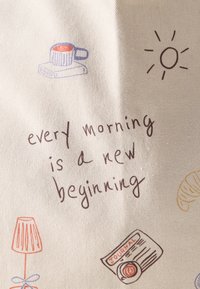 every morning
is a new
beginning
JOURNAL